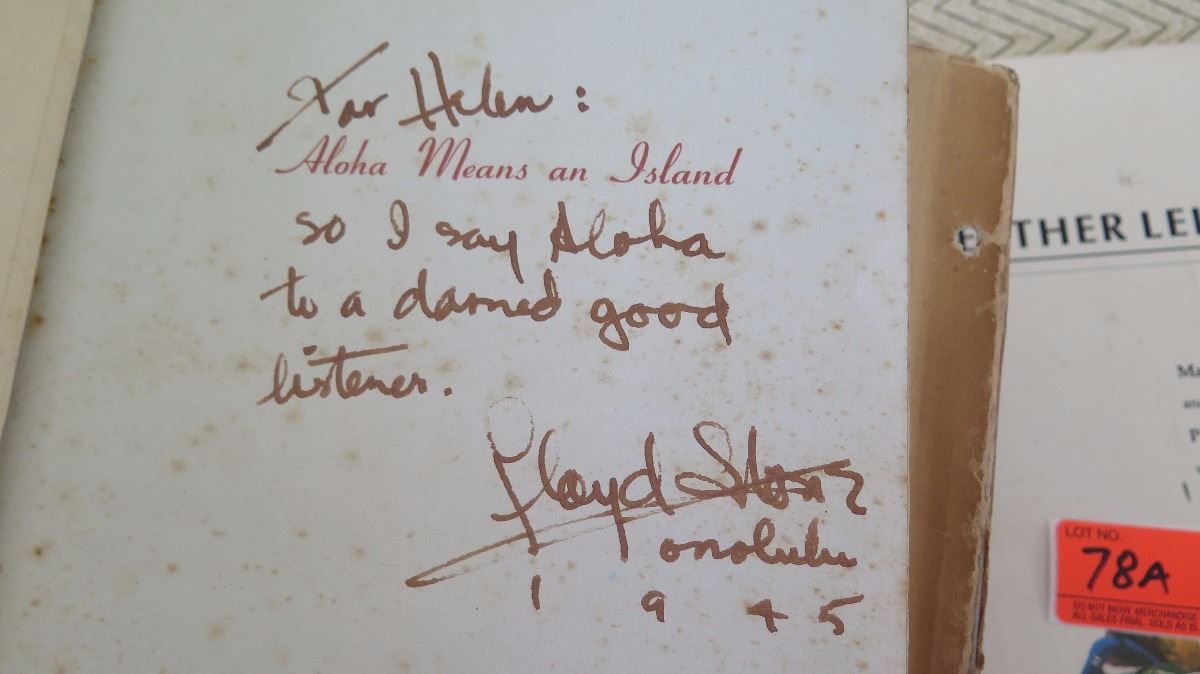 For Helen:
Aloha Means an Island
so I say Aloha
to a darned good
listener.
Lloyd Stone
Honolulu
1945
THER LEI
Ma
P
LOT NO.
78A
DO NOT MOVE MERCHANDISE
ALL SALES FINAL SOLD AS IS